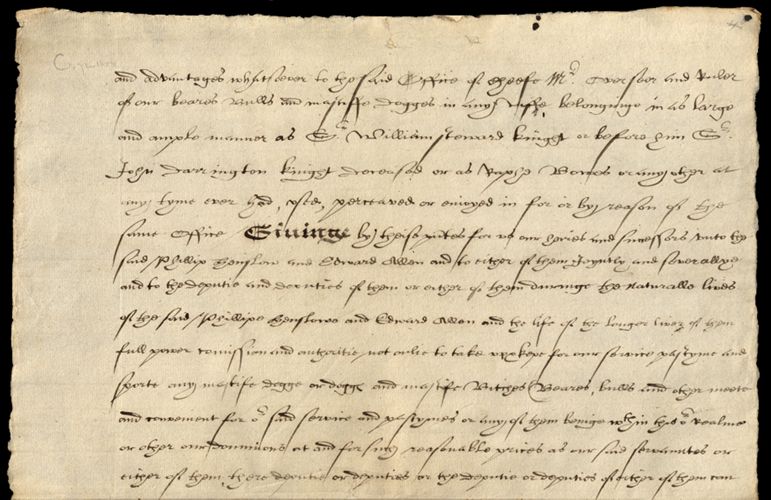 and advantages whatsoever to the said Office of Cheefe Mr Overseer and Ruler
of our beares Bulls and mastiffe dogges in any wise belonginge in as large
and ample manner as Sr William steward knight or before him Sr
John darrington knight deceased or as Raphe Bowes or any other at
any tyme ever had, used, perceaved or enioyed in for or by reason of the
same Office Givinge by theise pntes for us our heires and successors unto the
said Phillip Henslow and Edward Allen and to either of them Joyntly and severallye
and to the deputie and deputies of them or either of them duringe the naturall lives
of the said Phillipe Henslowe and Edward Allen and the life of the longer liver of them
full power comission and authoritie not onlie to take upp kepe for our service pastyme and
sporte any mastife dogge or dogges and mastife Bitches Beares, bulls and other meete
and convenient for or said service and pastymes or any of them beinge wthin this or realme
or other our dominions at and for such reasonable prices as our said servauntes or
either of them there deputie or deputies or the deputie or deputies of either of them can